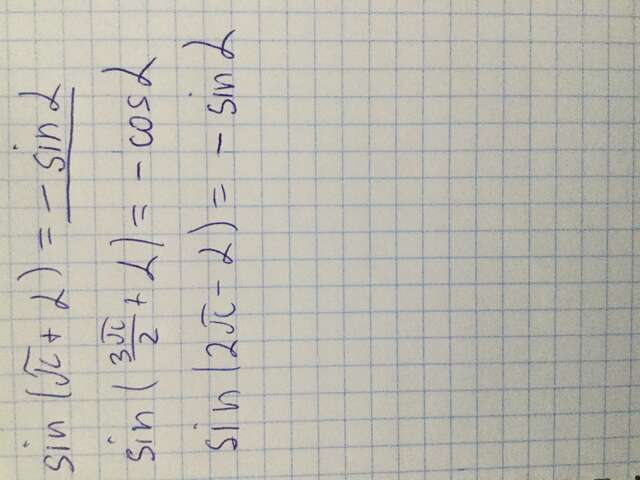 sin(π + α) = - sin α
sin(3π/2 + α) = - cos α
sin(2π - α) = - sin α